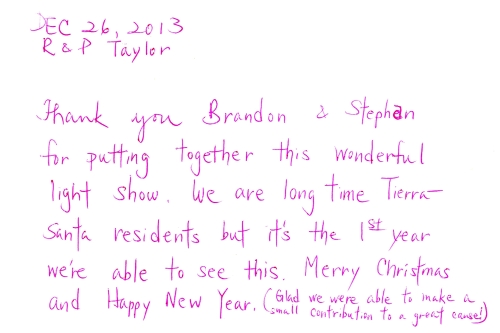 DEC 26, 2013
R & P Taylor
Thank you Brandon & Stephan
for putting together this wonderful
light show. We are long time Tierra-
Santa residents but it's the 1st year
we're able to see this. Merry Christmas
and Happy New Year. (Glad we were able to make a
small contribution to a great cause!)